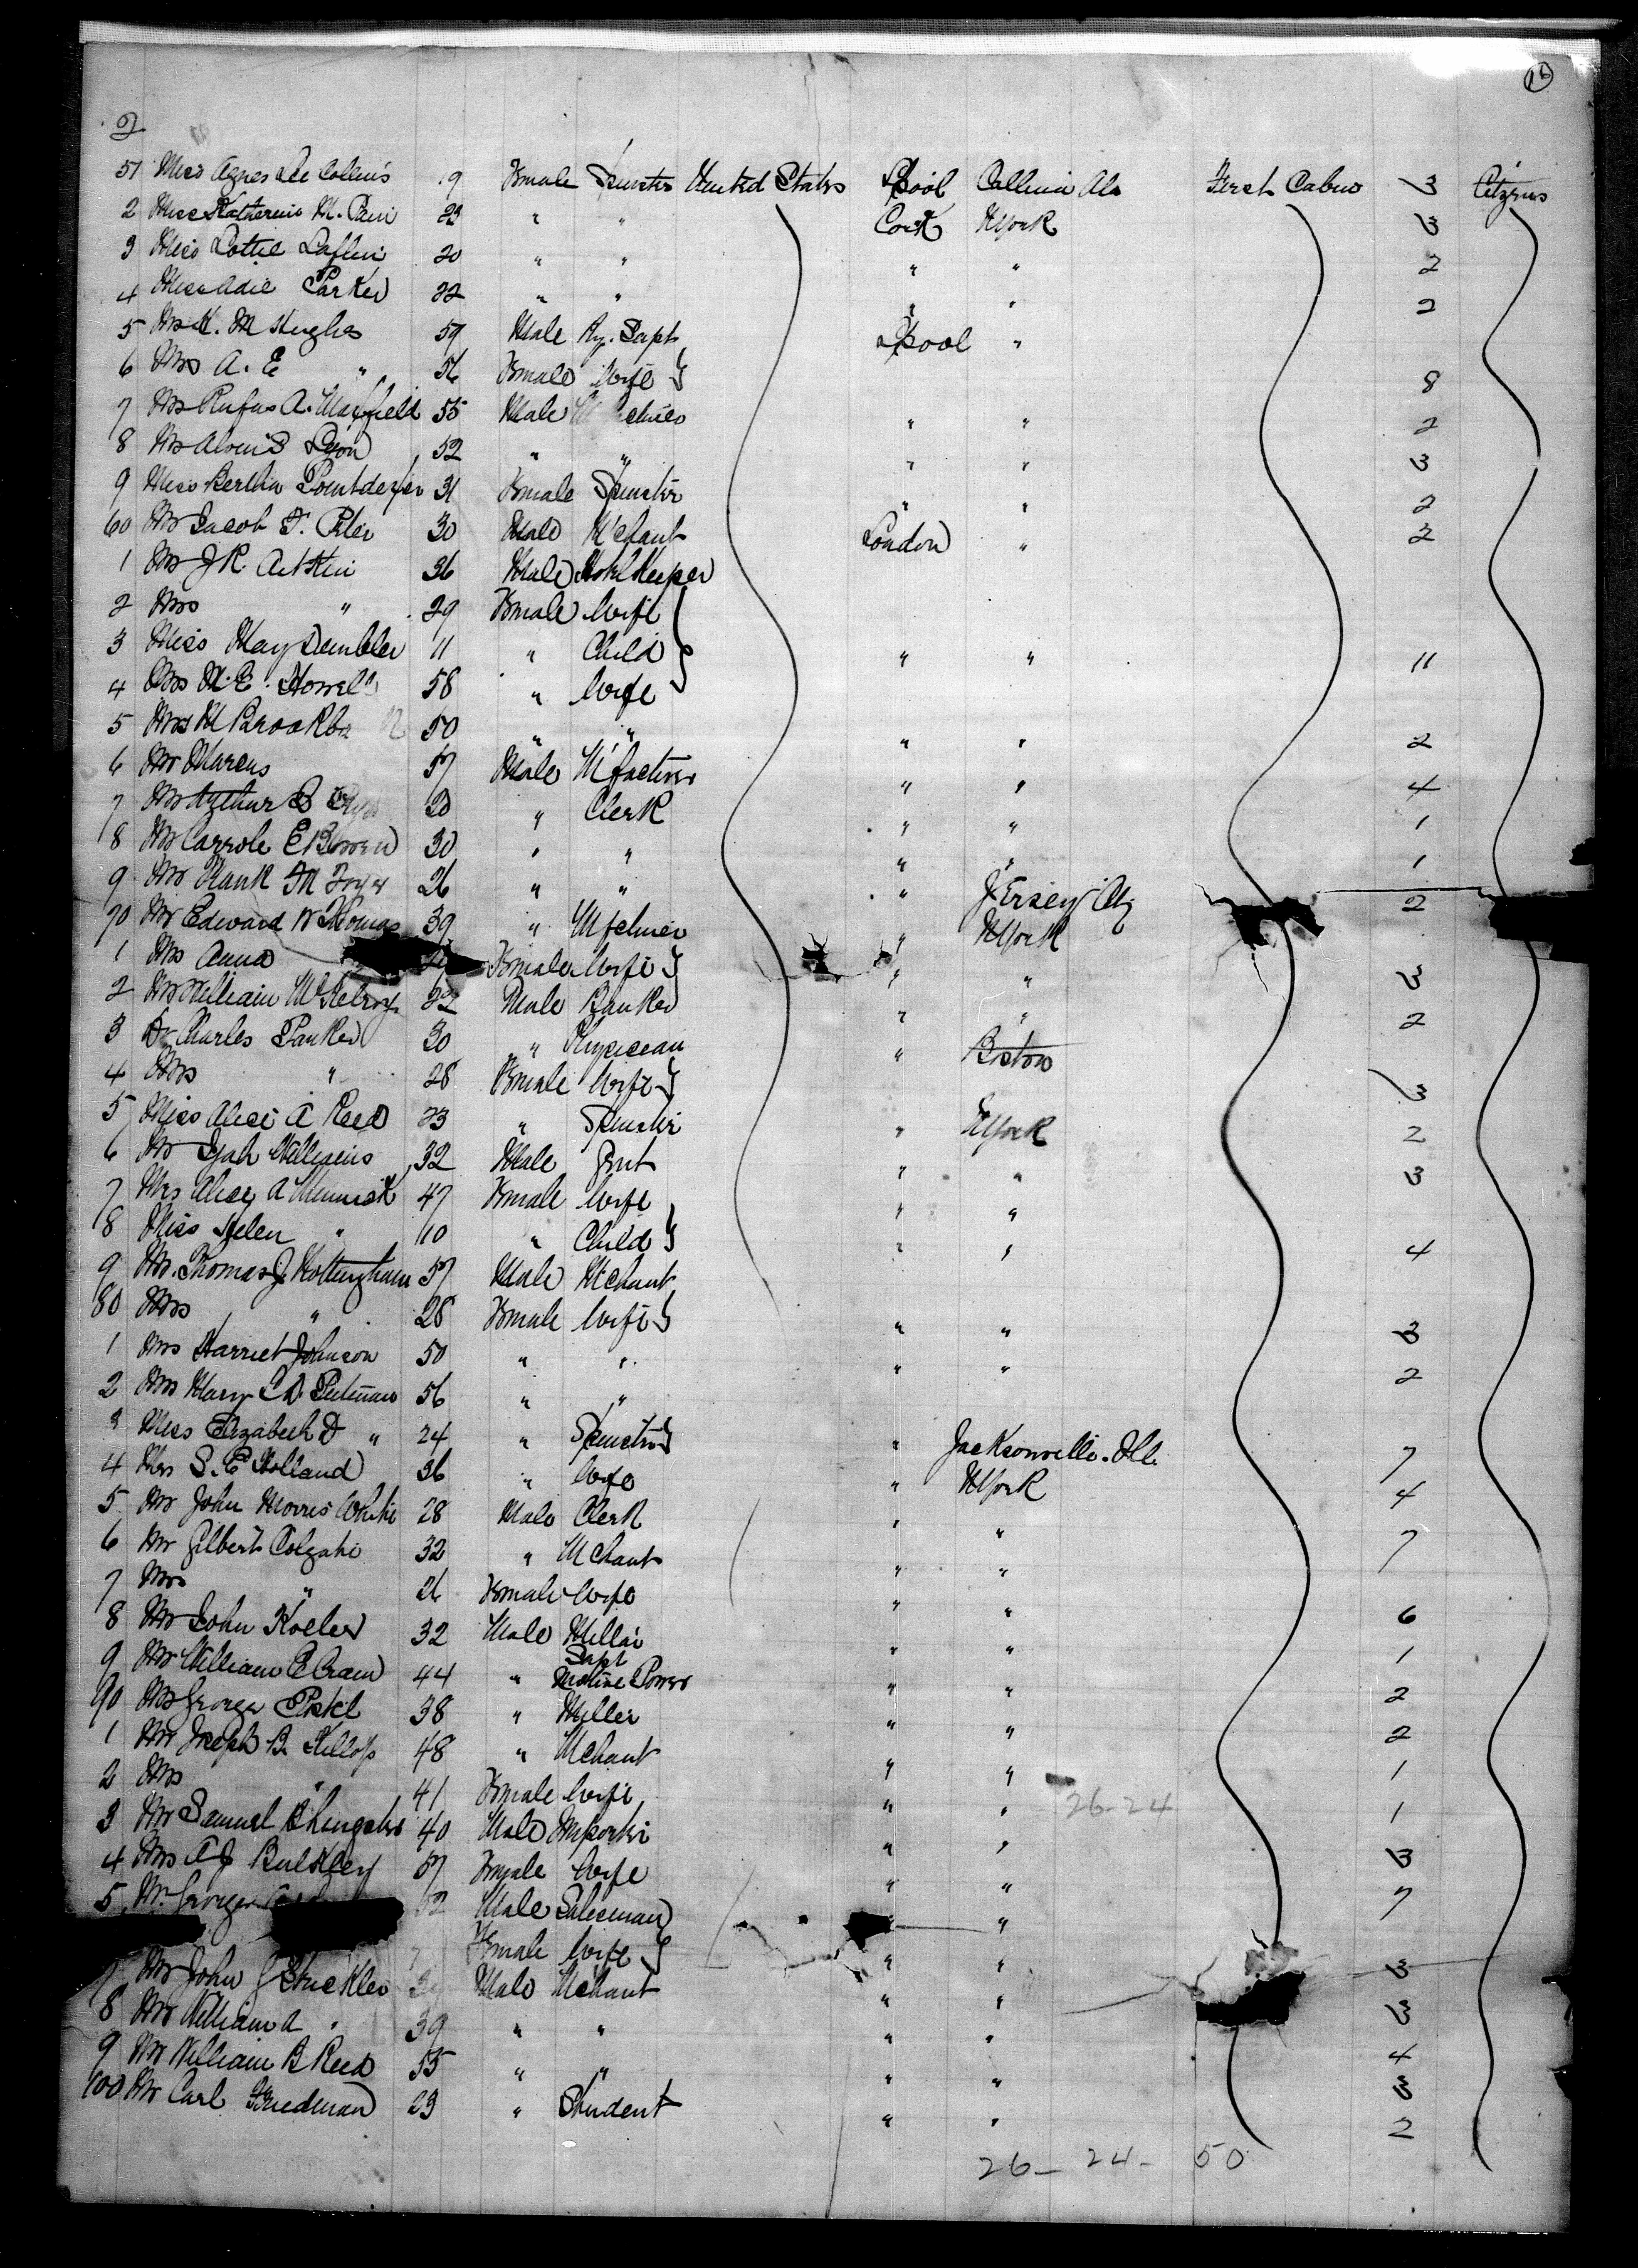 16
2
51 Miss Agnes Lee Collins 19 Female Spinster United States L'pool Cullman Ala First Cabin 3 Citizens
2 Miss Katherine M. 23 " " Cork N York 3
3 Miss Lottie Laflin 20 " " " " 2
4 Miss Adie Parker 22 " " " " 2
5 Mr H. M Hughes 59 Male Ry. Supt L'pool "
6 Mrs A. E " 56 Female Wife 8
7 Mr Rufus A. Mayfield 55 Male " " 2
8 Mr Alvin S Lyon 52 " " " " 3
9 Miss Bertha 31 Female Spinster " " 2
60 Mr Jacob F. 30 Male Mchant London " 2
1 Mr J R. Aitkin 36 Male Hotel Keeper
2 Mrs " 29 Female Wife
3 Miss May Dembler 11 " Child " " 11
4 Mrs M. E. Howell 58 " Wife
5 Mrs M 50 " " " " 2
6 Mr Marcus 57 Male M'facturer " " 4
7 Mr Arthur B 20 " Clerk " " 1
8 Mr Carrole E Brown 30 " " " " 1
9 Mr Frank M Fryer 26 " " " Jersey City 2
70 Mr Edward W Thomas 39 " Mfchuer " N York
1 Mrs Anna Female Wife " " 3
2 Mr William McKelroy 22 Male Banker " " 2
3 Dr Charles Parker 30 " Physician " Boston
4 Mrs " 28 Female Wife 3
5 Miss Alice A Reed 23 " Spinster " N York 2
6 Mr Williams 32 Male Gent " " 3
7 Mrs Alice A 47 Female Wife " "
8 Miss Helen " 10 " Child " " 4
9 Mr. Thomas J Nottingham 37 Male Mchant
80 Mrs " 28 Female Wife " " 3
1 Mrs Harriet Johnson 50 " " " " 2
2 Mrs Mary C D. Putman 56 " "
3 Miss Elizabeth D " 24 " Spinster " Jacksonville. Ill. 7
4 Mrs S. E Holland 36 " Wife " N York 4
5 Mr John Morris White 28 Male Clerk " " 7
6 Mr Gilbert Colgate 32 " Mchant " "
7 Mrs " 26 Female Wife " " 6
8 Mr John Koeler 32 Male Miller " " 1
9 Mr William E Crain 44 " Supt Motive Power " " 2
90 Mr George 38 " Miller " " 2
1 Mr Joseph B. Kellop 48 " Mchant " " 1
2 Mrs " 41 Female Wife " " 26-24 1
3 Mr Samuel 40 Male Importer " " 3
4 Mrs A J Bulkley 57 Female Wife " " 7
5 Mr. George 52 Male Salesman " "
Female Wife " " 3
7 Mr John J Stuckler Male Mchant " " 3
8 Mr William A " 39 " " " " 4
9 Mr William B Reed 55 " " " " 3
100 Mr Carl Friedman 23 " Student " " 2
26- 24- 50